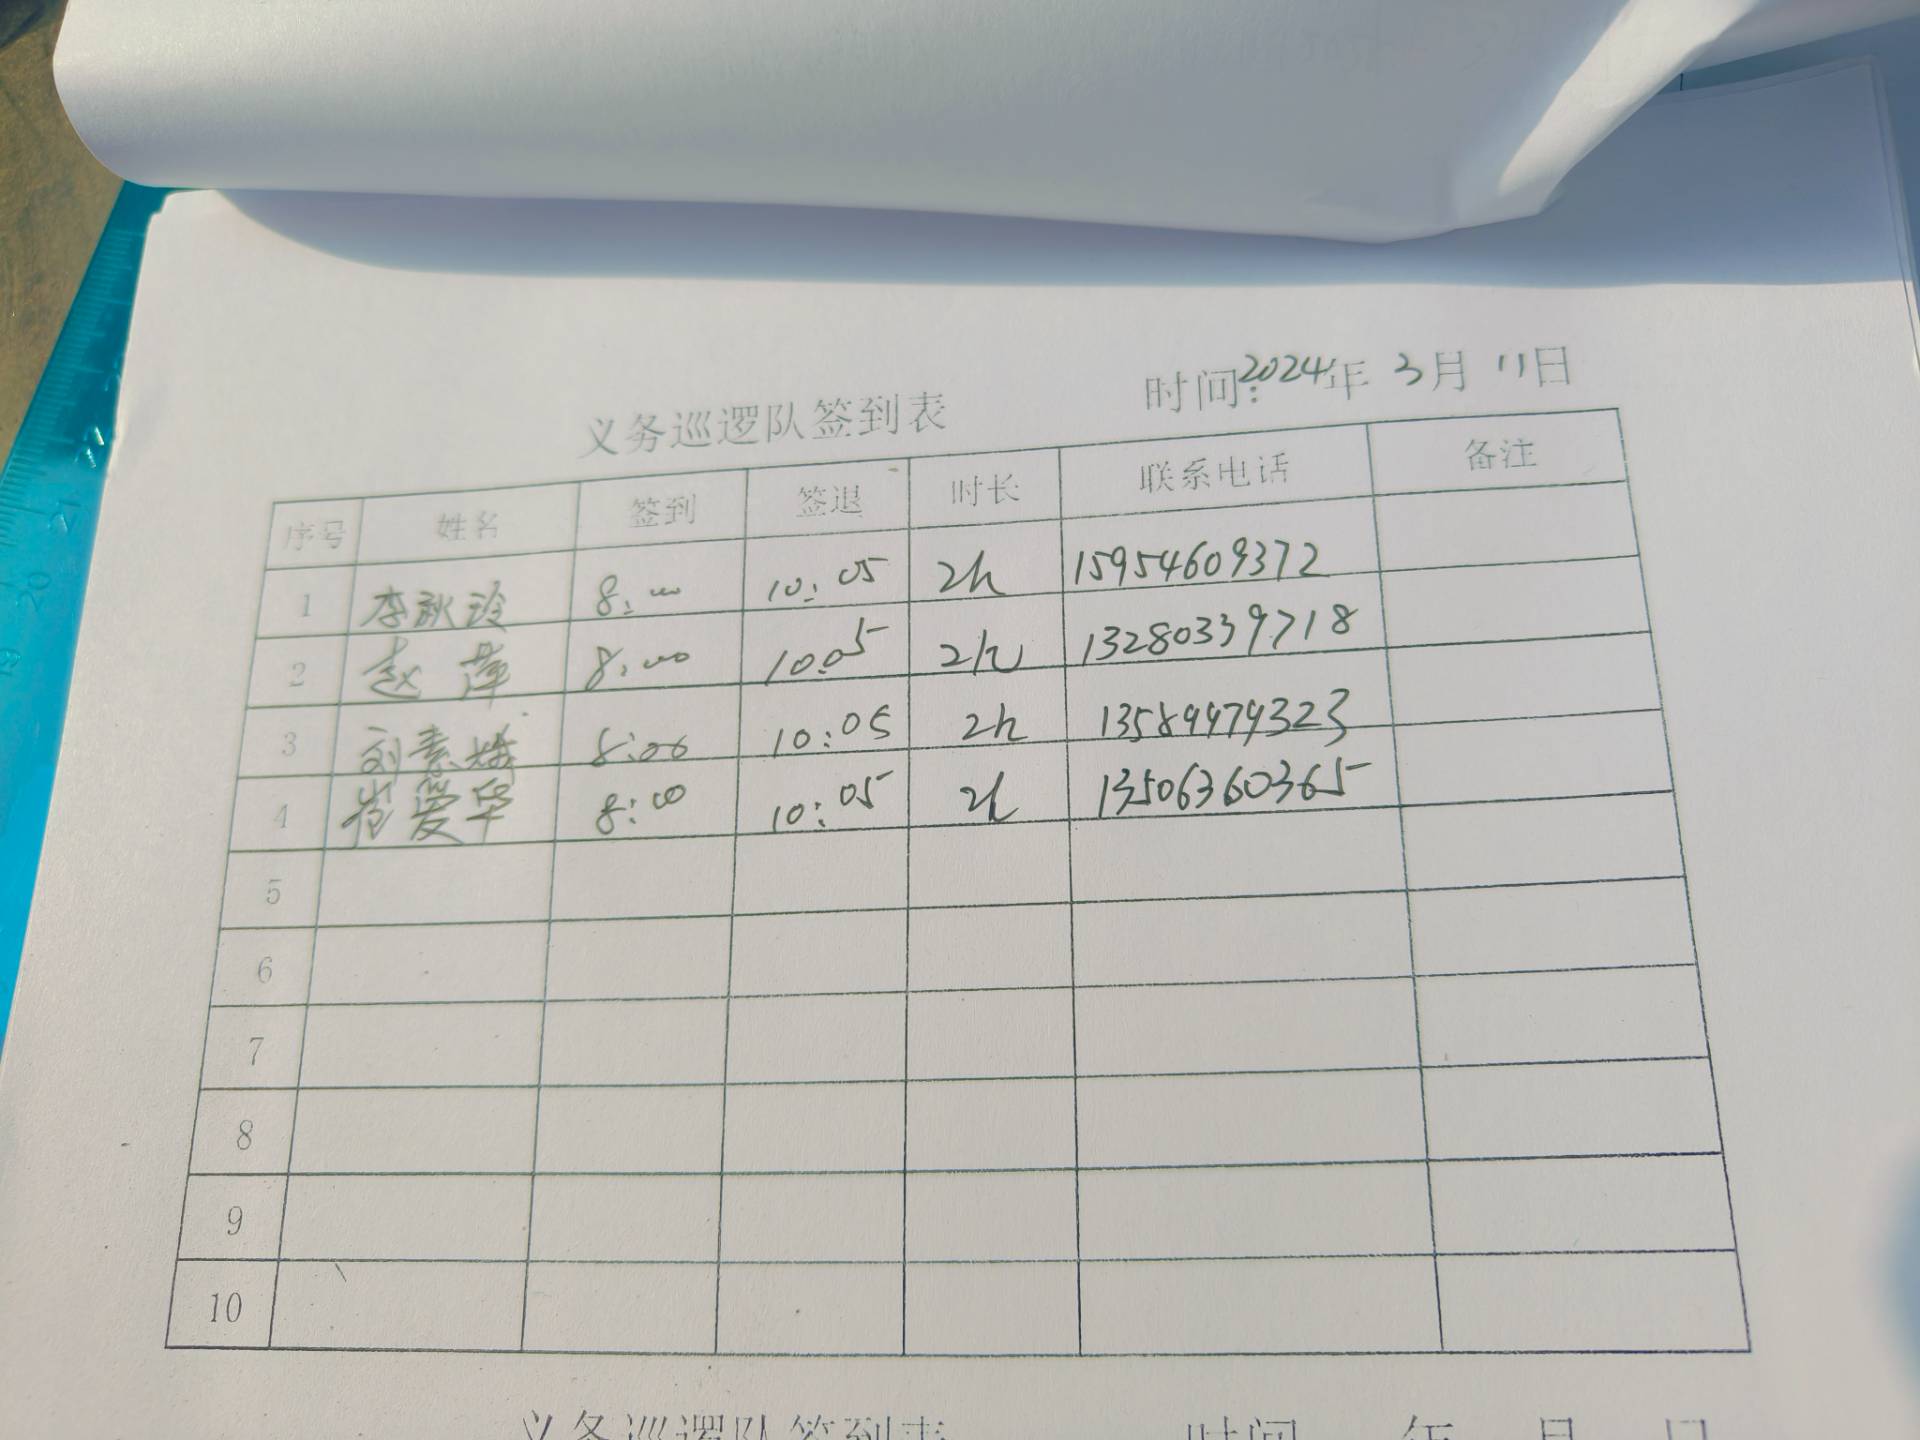 义务巡逻队签到表 时间:2024年 3月 11日
序号 姓名 签到 签退 时长 联系电话 备注
1 李秋玲 8:00 10:05 2h 15954609372
2 赵萍 8:00 10:05 2h 13280339718
3 刘素娥 8:00 10:05 2h 13589979323
4 崔爱华 8:00 10:05 2h 13506360365
5
6
7
8
9
10
义务巡逻队签到表 时间 年 月 日